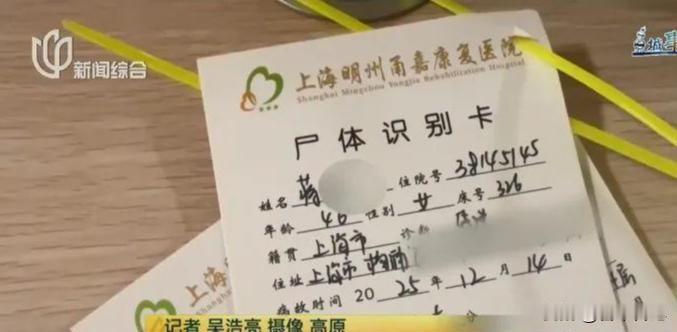 新闻综合
上海明州甬嘉康复医院
Shanghai Mingzhou Yongjia Rehabilitation Hospital
尸体识别卡
姓名 蒋 住院号 38145145
年龄 46 性别 女 床号 326
籍贯 上海市 诊断
住址 上海市
病故时间 2025年12月14日
上海
Shanghai
记者 吴浩亮 摄像 高原